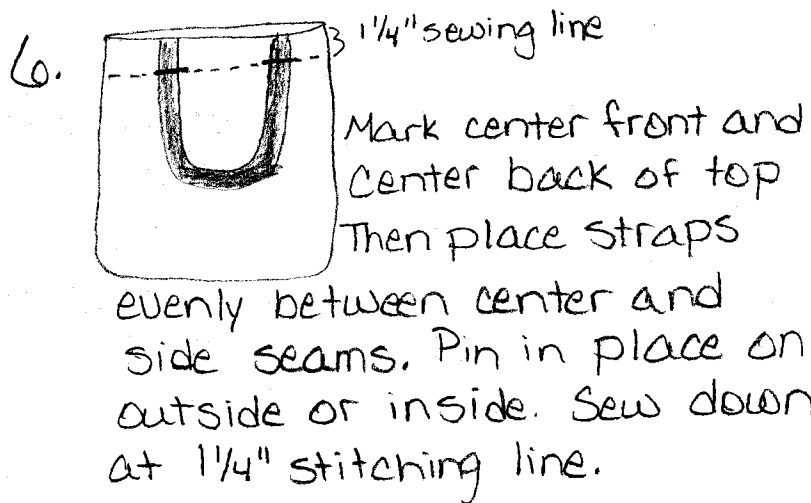 6.
1 1/4" sewing line
Mark center front and
center back of top
Then place straps
evenly between center and
side seams. Pin in place on
outside or inside. Sew down
at 1 1/4" stitching line.